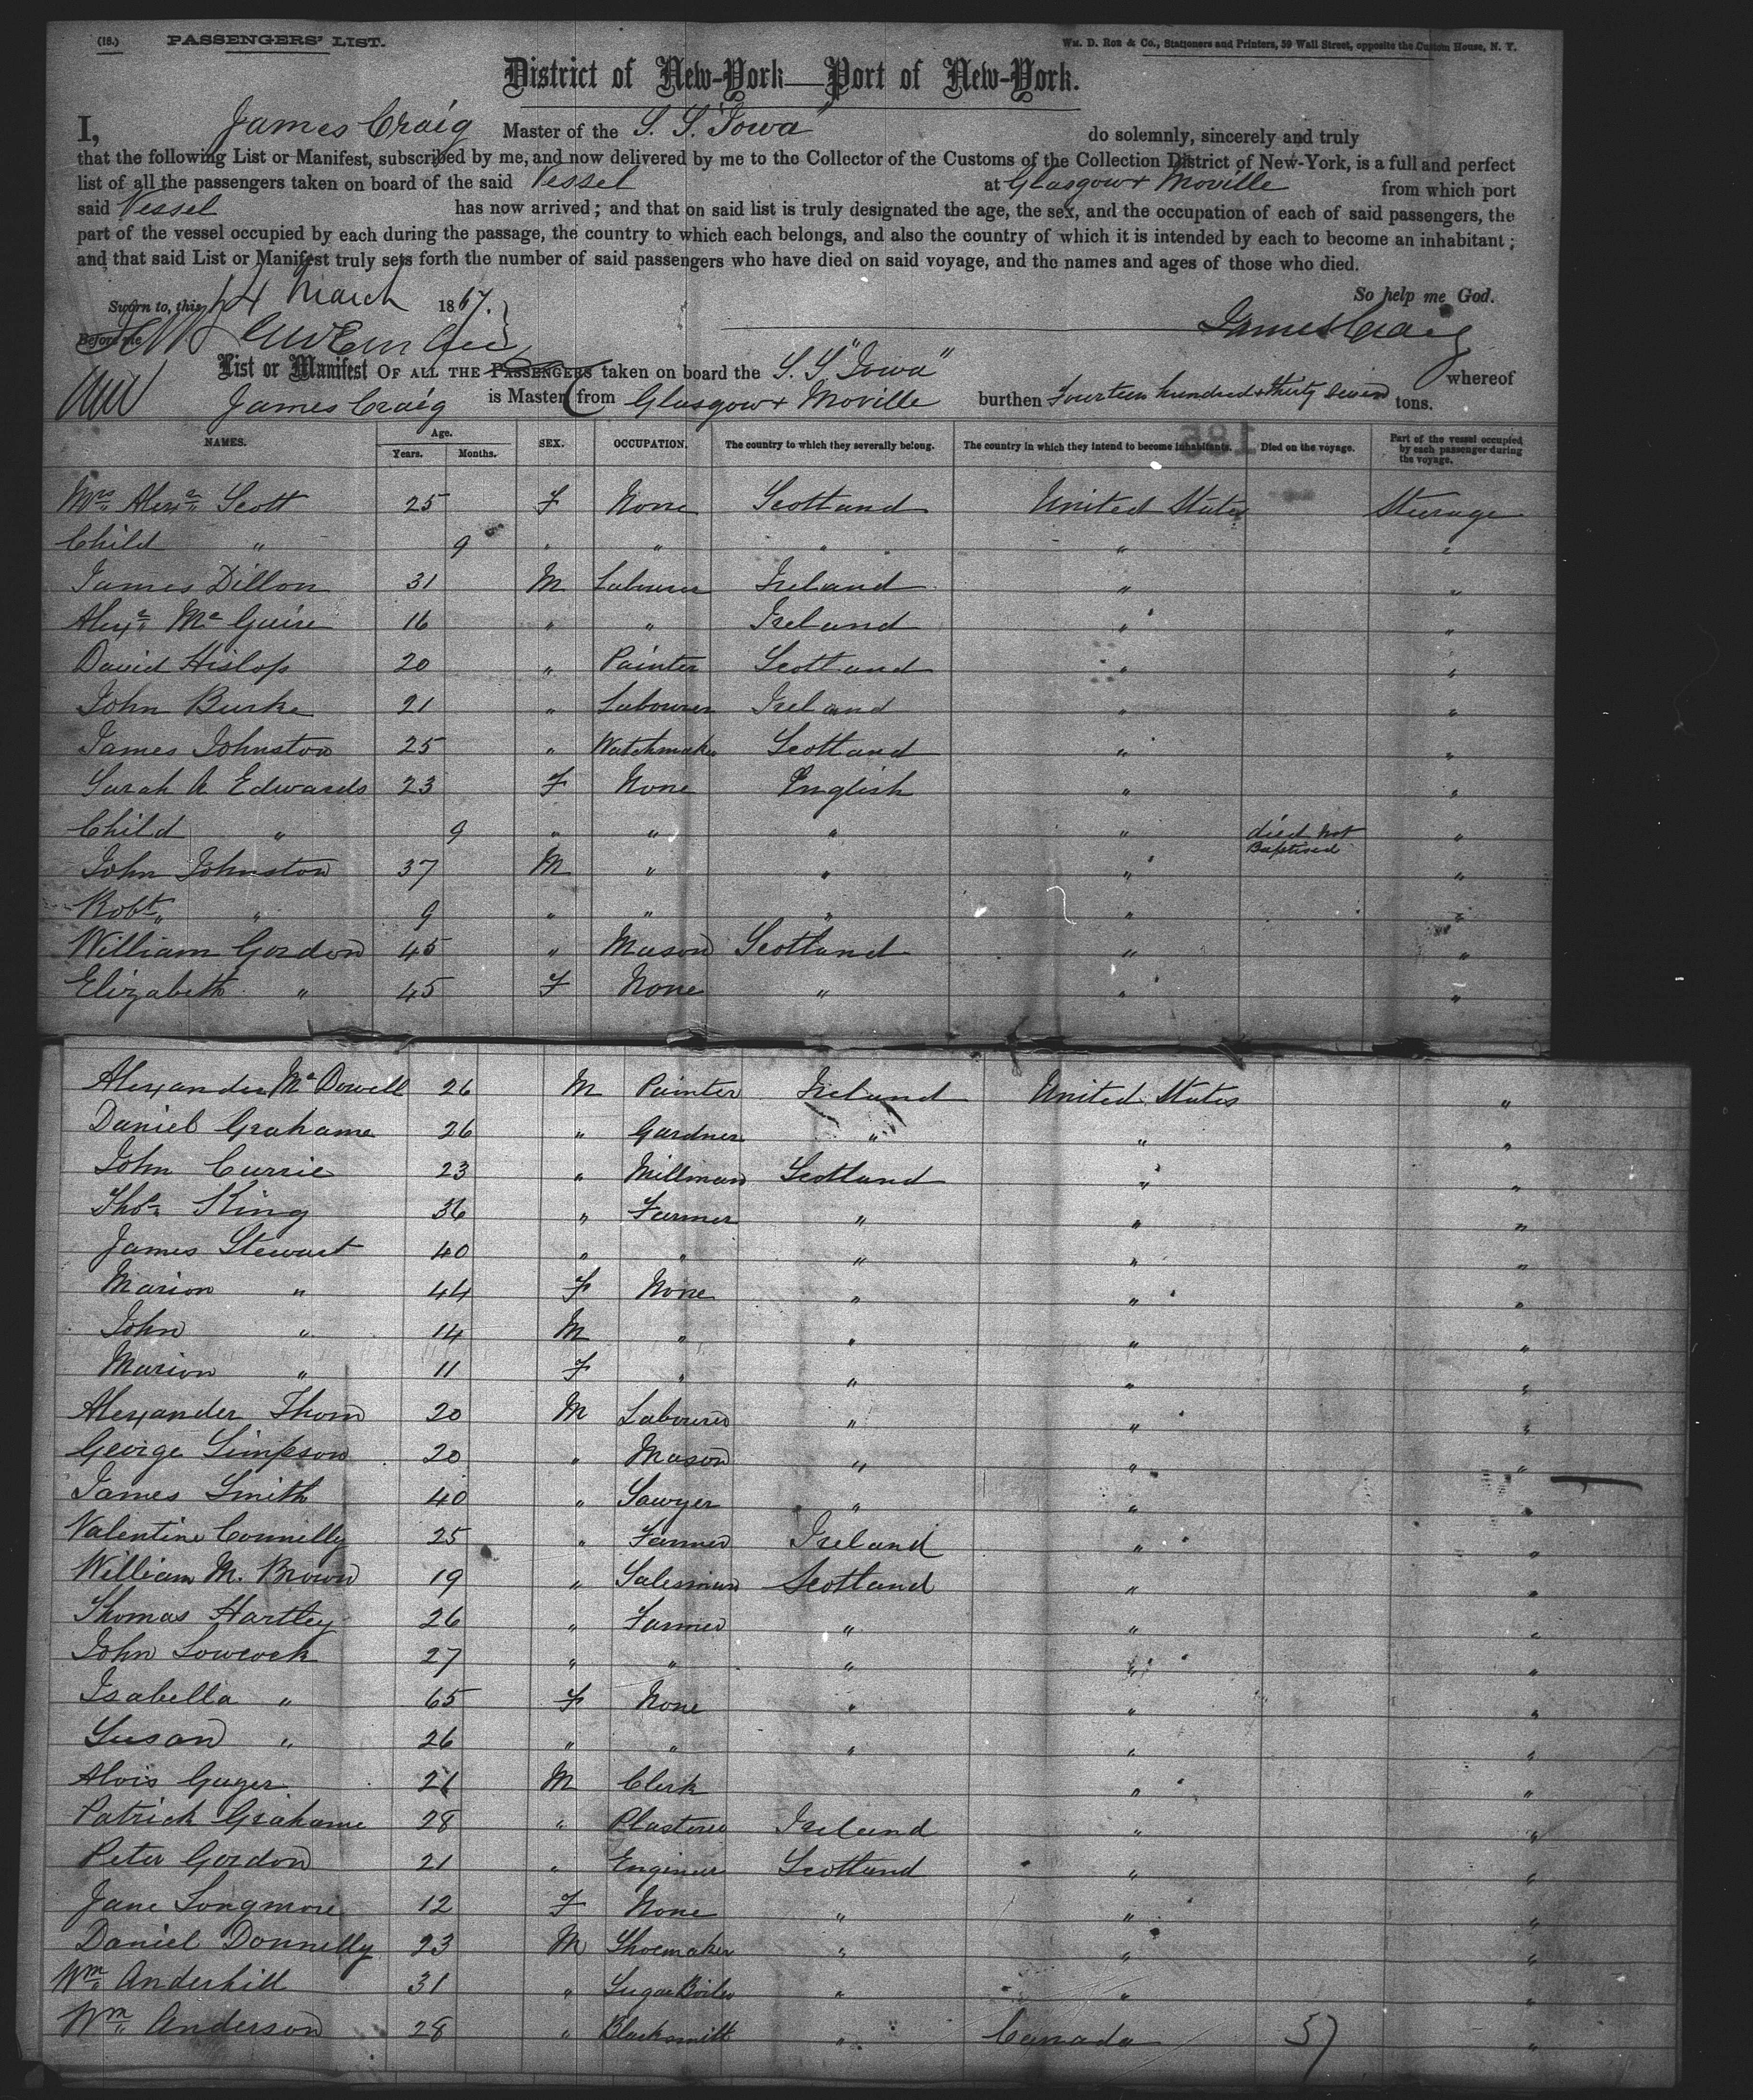 (16.) PASSENGERS' LIST. Wm. D. Roe & Co., Stationers and Printers, 59 Wall Street, opposite the Custom House, N. Y.
District of New-York—Port of New-York.
I, James Craig Master of the S. S. "Iowa" do solemnly, sincerely and truly
that the following List or Manifest, subscribed by me, and now delivered by me to the Collector of the Customs of the Collection District of New-York, is a full and perfect
list of all the passengers taken on board of the said Vessel at Glasgow & Moville from which port
said Vessel has now arrived; and that on said list is truly designated the age, the sex, and the occupation of each of said passengers, the
part of the vessel occupied by each during the passage, the country to which each belongs, and also the country of which it is intended by each to become an inhabitant;
and that said List or Manifest truly sets forth the number of said passengers who have died on said voyage, and the names and ages of those who died.
So help me God.
Sworn to, this 14 March 1867.
James Craig
Before me
List or Manifest OF ALL THE PASSENGERS taken on board the S. S "Iowa" whereof
James Craig is Master from Glasgow & Moville burthen Fourteen hundred & thirty seven tons.
NAMES. Age. Years. Months. SEX. OCCUPATION. The country to which they severally belong. The country in which they intend to become inhabitants. Died on the voyage. Part of the vessel occupied by each passenger during the voyage.
Mrs Alexr Scott 25 F None Scotland United States Steerage
Child " 9 " " " " "
James Dillon 31 M Labourer Ireland " "
Alexr McGuire 16 " " Ireland " "
David Hislop 20 " Painter Scotland " "
John Burke 21 " Labourer Ireland " "
James Johnston 25 " Watchmaker Scotland " "
Sarah A Edwards 23 F None English " "
Child " 9 " " " " died not Baptised "
John Johnston 37 M " " " "
Robt " 9 " " " " "
William Gordon 45 " Mason Scotland " "
Elizabeth " 45 F None " " "
Alexander McDowell 26 M Painter Ireland United States "
Daniel Grahame 26 " Gardner " " "
John Currie 23 " Millman Scotland " "
Thos King 36 " Farmer " " "
James Stewart 40 " " " " "
Marion " 44 F None " " "
John " 14 M " " " "
Marion " 11 F " " " "
Alexander Thom 20 M Labourer " " "
George Simpson 20 " Mason " " "
James Smith 40 " Sawyer " " "
Valentine Connelly 25 " Farmer Ireland " "
William M. Brown 19 " Salesman Scotland " "
Thomas Hartley 26 " Farmer " " "
John Lowcock 27 " " " " "
Isabella " 65 F None " " "
Susan " 26 " " " " "
Alois Guger M Clerk " "
Patrick Grahame 28 " Plasterer Ireland " "
Peter Gordon 21 " Engineer Scotland " "
Jane Longmore 12 F None " " "
Daniel Donnelly 23 M Shoemaker " " "
Wm Anderhill 31 " Sugar Boiler " " "
Wm Anderson 28 " Blacksmith " Canada 37 "